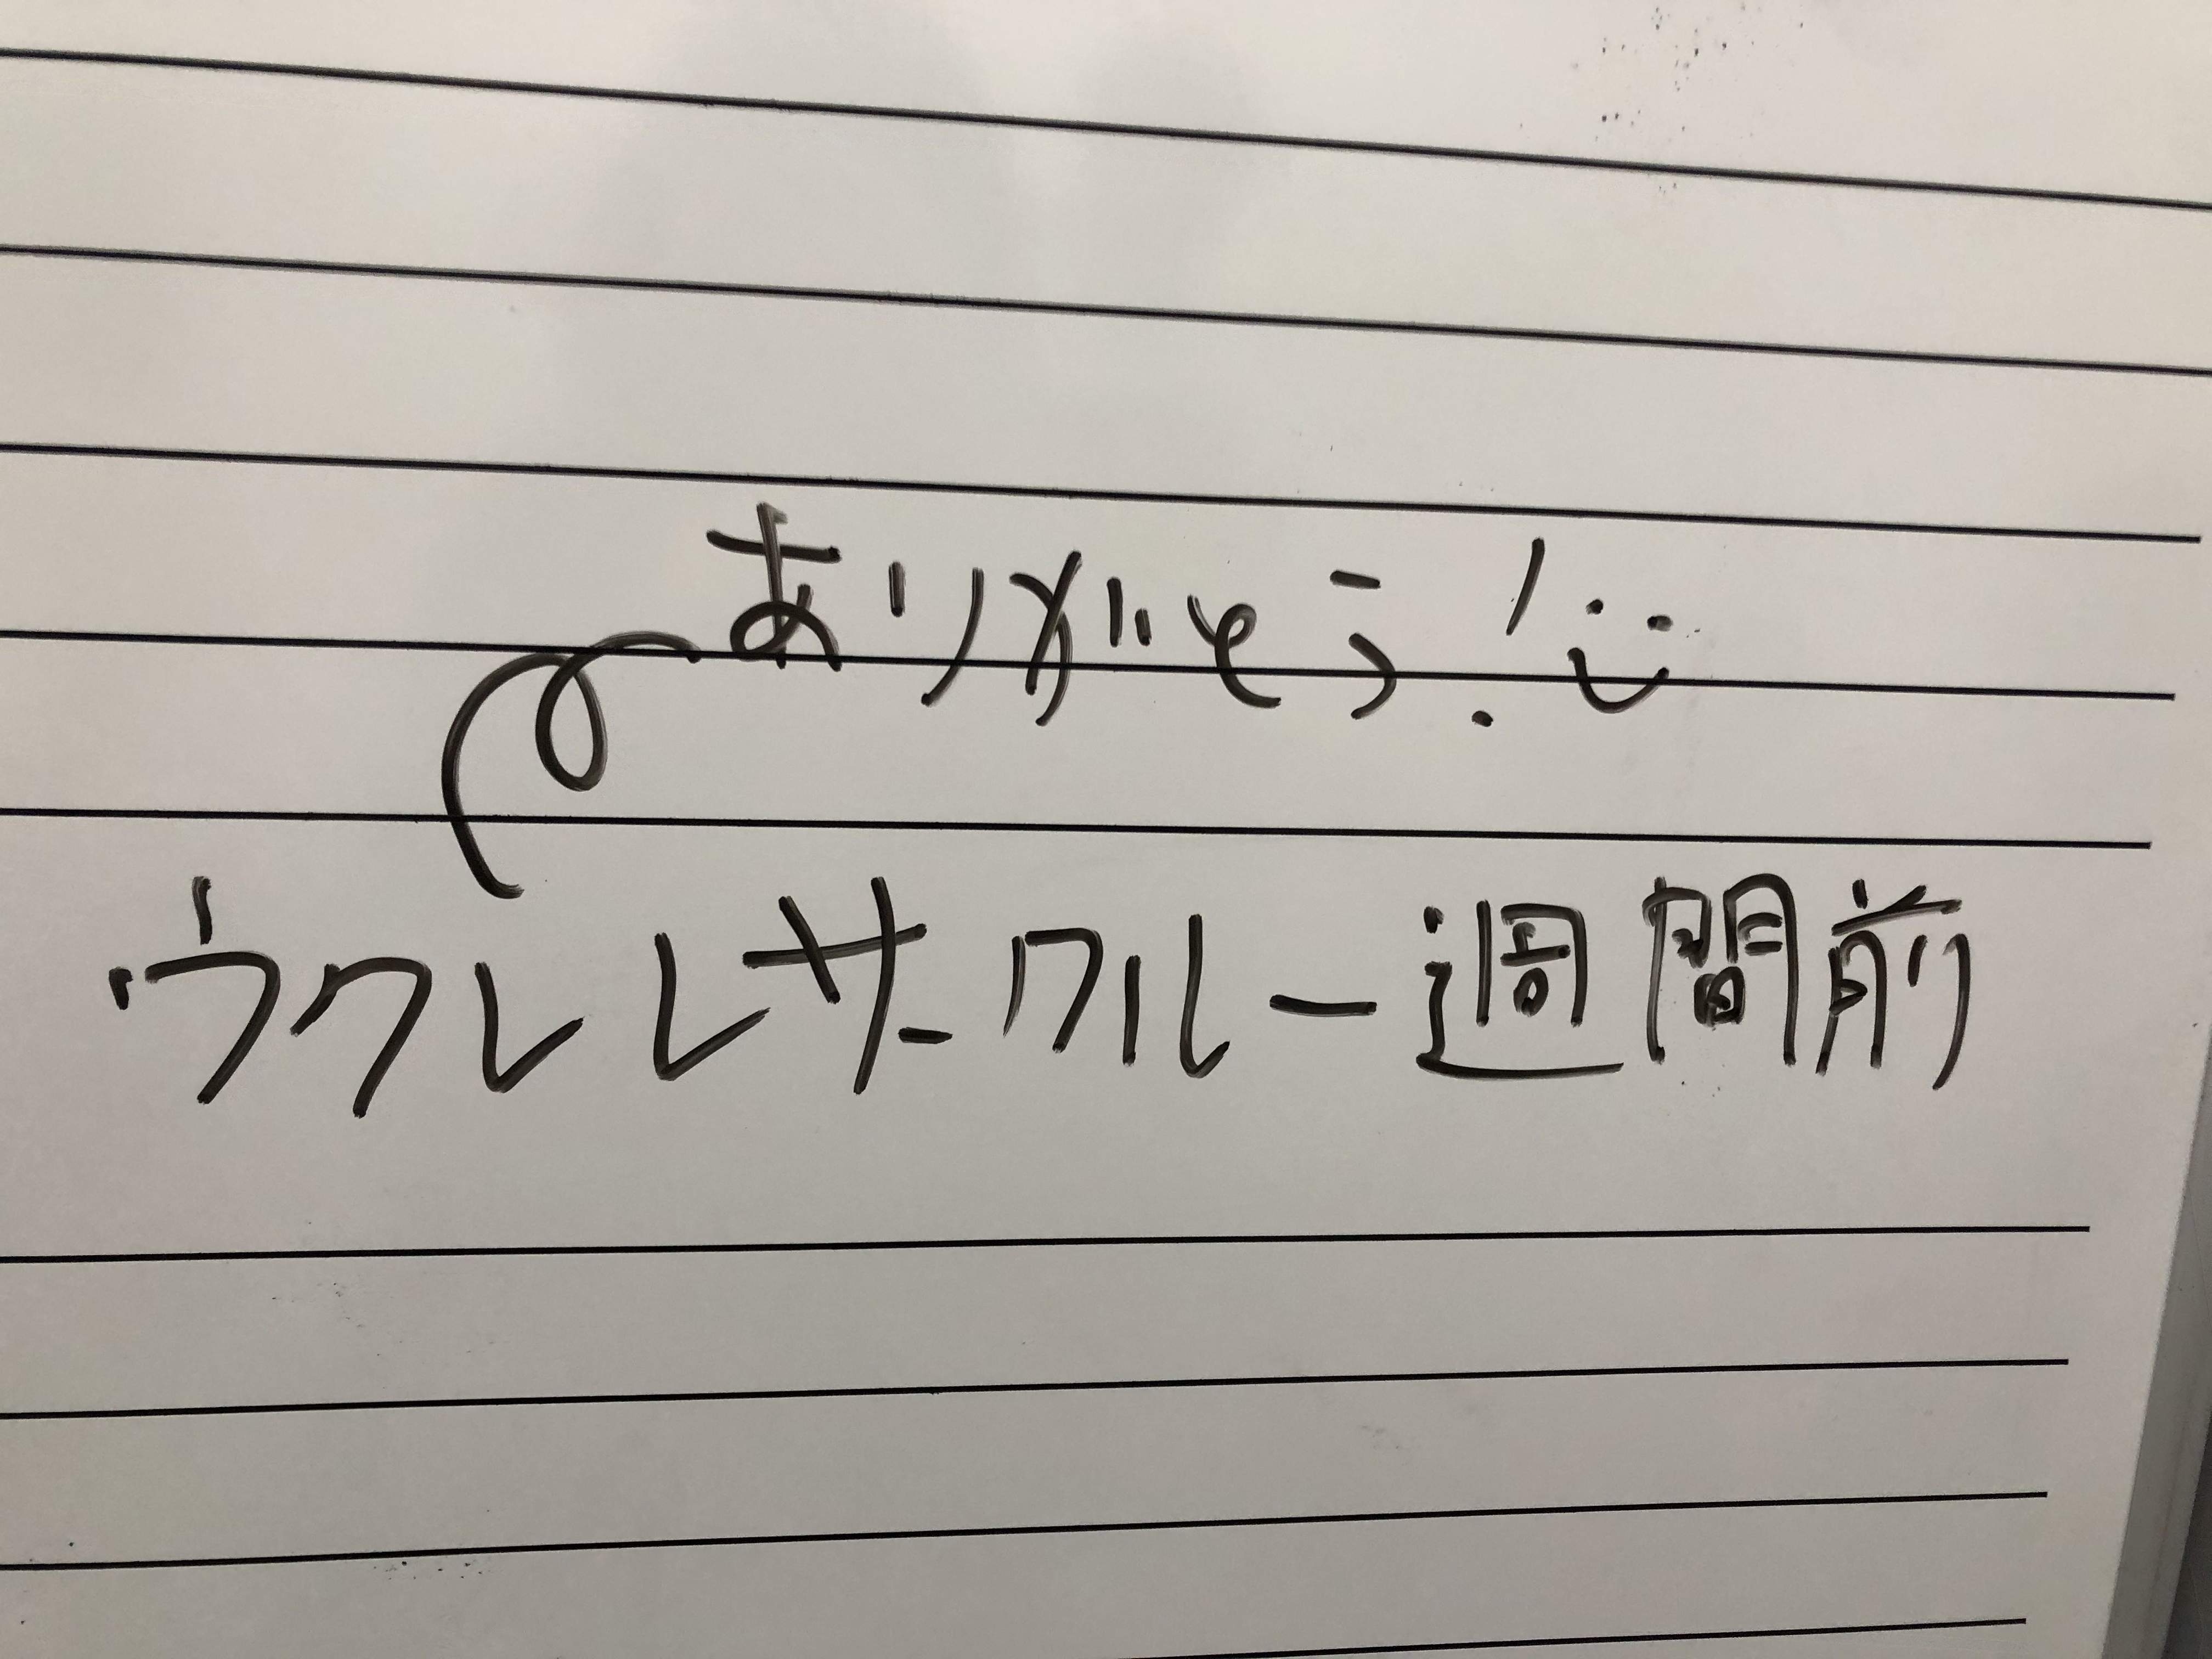 ありがとう!
ウクレレサークル一週間前